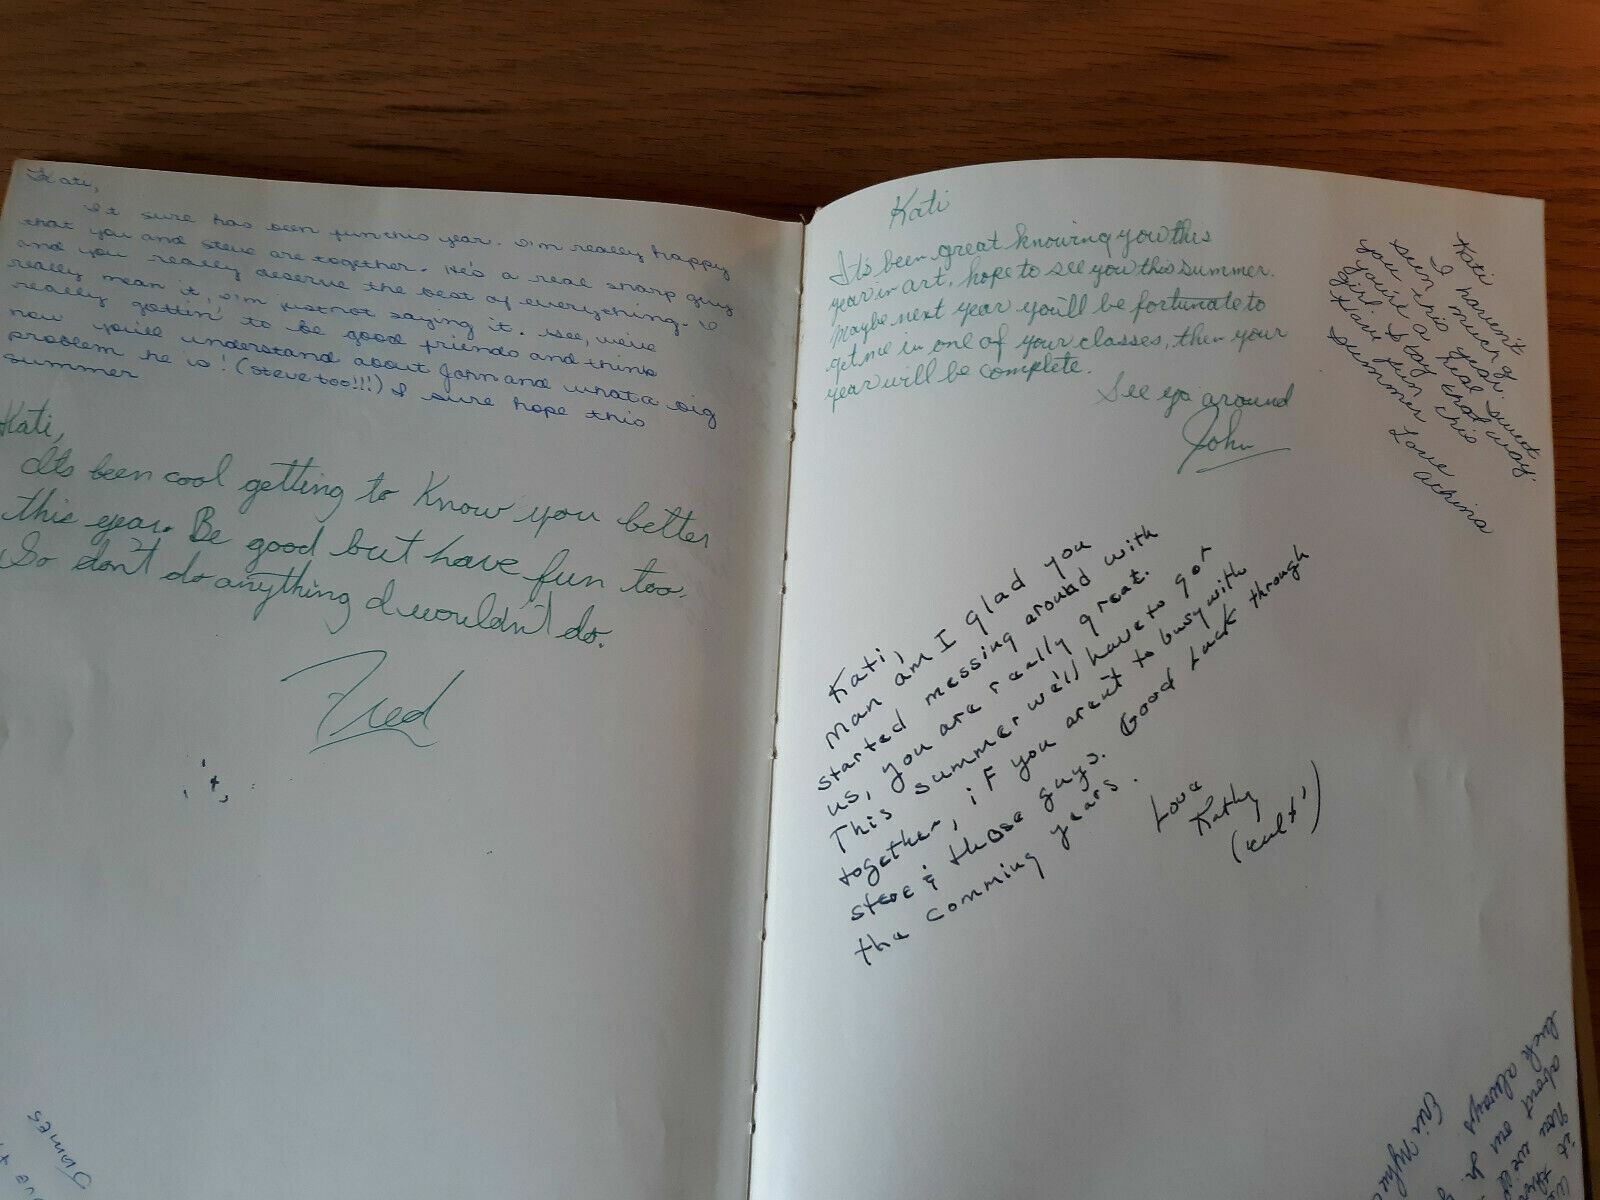 Kati,
It sure has been fun this year. I'm really happy
that you and Steve are together. He's a real sharp guy
and you really deserve the best of everything. I
really mean it, I'm just not saying it. See, we're
really gettin' to be good friends and think
now you'll understand about John and what a big
problem he is! (Steve too!!!) I sure hope this
summer
Kati,
Its been cool getting to Know you better
this year. Be good but have fun too.
So don't do anything I wouldn't do.
Fred
James
Kati
It's been great knowing you this
year in art, hope to see you this summer.
Maybe next year you'll be fortunate to
get me in one of your classes, then your
year will be complete.
See ya around
John
Kati
I haven't
seen this much of
you this year.
you're a real sweet
girl. Stay that way.
Have fun this
summer
Love
Kati,
Man am I glad you
started messing around with
us, you are really great.
This summer we'll have to get
together, if you aren't to busy with
steve & those guys. Good Luck through
the comming years.
Love
Kathy
luck always
about our
Now we
it
the
Eric